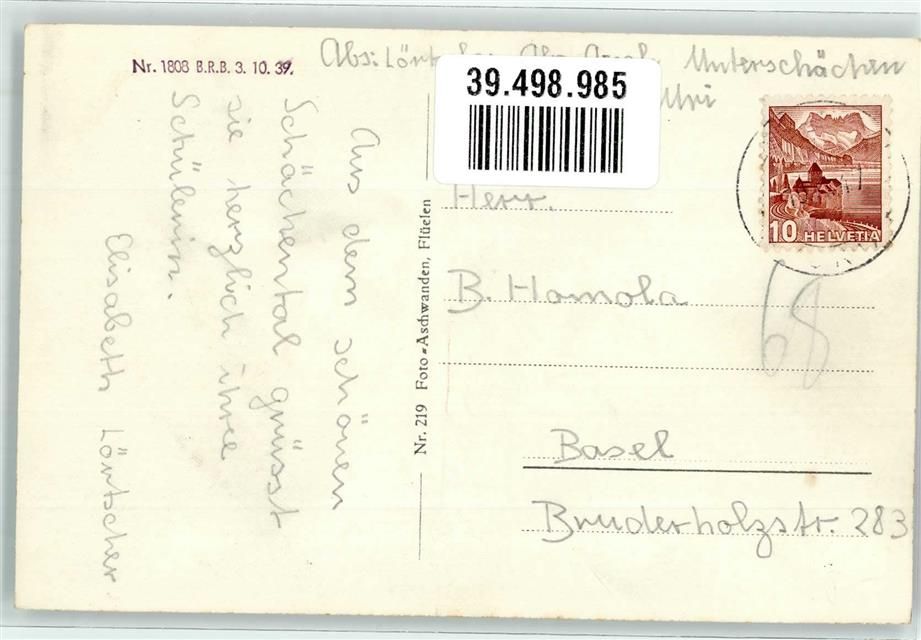 Nr. 1808 B.R.B. 3. 10. 39.
Abs: Unterschächen
Uri
39.498.985
Aus dem schönen
Schächental grüsst
sie herzlich ihre
Schülerin.
Elisabeth Lörtscher
Nr. 219 Foto-Aschwanden, Flüelen
10 HELVETIA
Herr.
B. Homola
68
Basel
Bruderholzstr. 283